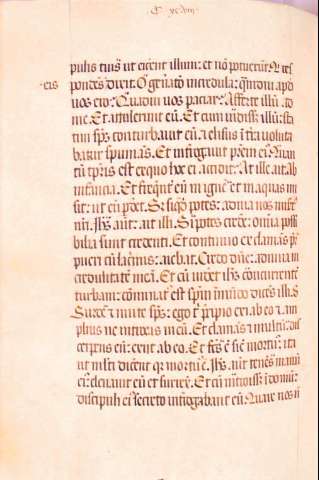 C xcviii
pulis tuis ut eicerēt illum: et nō potuerūt. Qui res
eis
pondēs dixit. O gñatō incredula: q̄mdiu apd
uos ero: Quādiu uos paciar: Afferte illū. ad
me. Et attulerūt eū. Et cum uidissꝫ illū: sta
tim sp̄s conturbauit eū: et elisus ī trā uoluta
batur spumās. Et int̄rogauit patrē eiꝰ. Quan
tū tp̄ris est ex quo hoc ei accidit: At ille ait. ab
infācia. Et frequent̄ eū in ignē et in aquas mi
sit: ut eū p̄det. Si siqd potes: adiuua nos misertꝰ
nr̄i. Ihs̄ aūt: ait illi. Si potes credere: omnia possi
bilia sunt credenti. Et continuo exclamās pr̄
pueri cū lacrimis: aiebat. Credo dn̄e: adiuua in
credulitatē meā. Et cū uideret ihs̄ cōcurrentē
turbam: cōminatꝰ est spūi īmūdo dicēs illi. S
Surde et mute sp̄s: ego tibi p̄cipio exi ab eo et am
plius ne introeas in eū. Et clamās et multū: dis
cerpens eū: exiit ab eo. Et fc̄s ē sic̄ mortuꝰ: ita
ut multi dicerēt qr mortuꝰ ē. Ihs̄ aūt tenēs manū
eiꝰ: eleuauit eū et surrex̄. Et cū introissꝫ ī domū:
discipuli eiꝰ secreto int̄rogabāt eū: Quare nos n̄